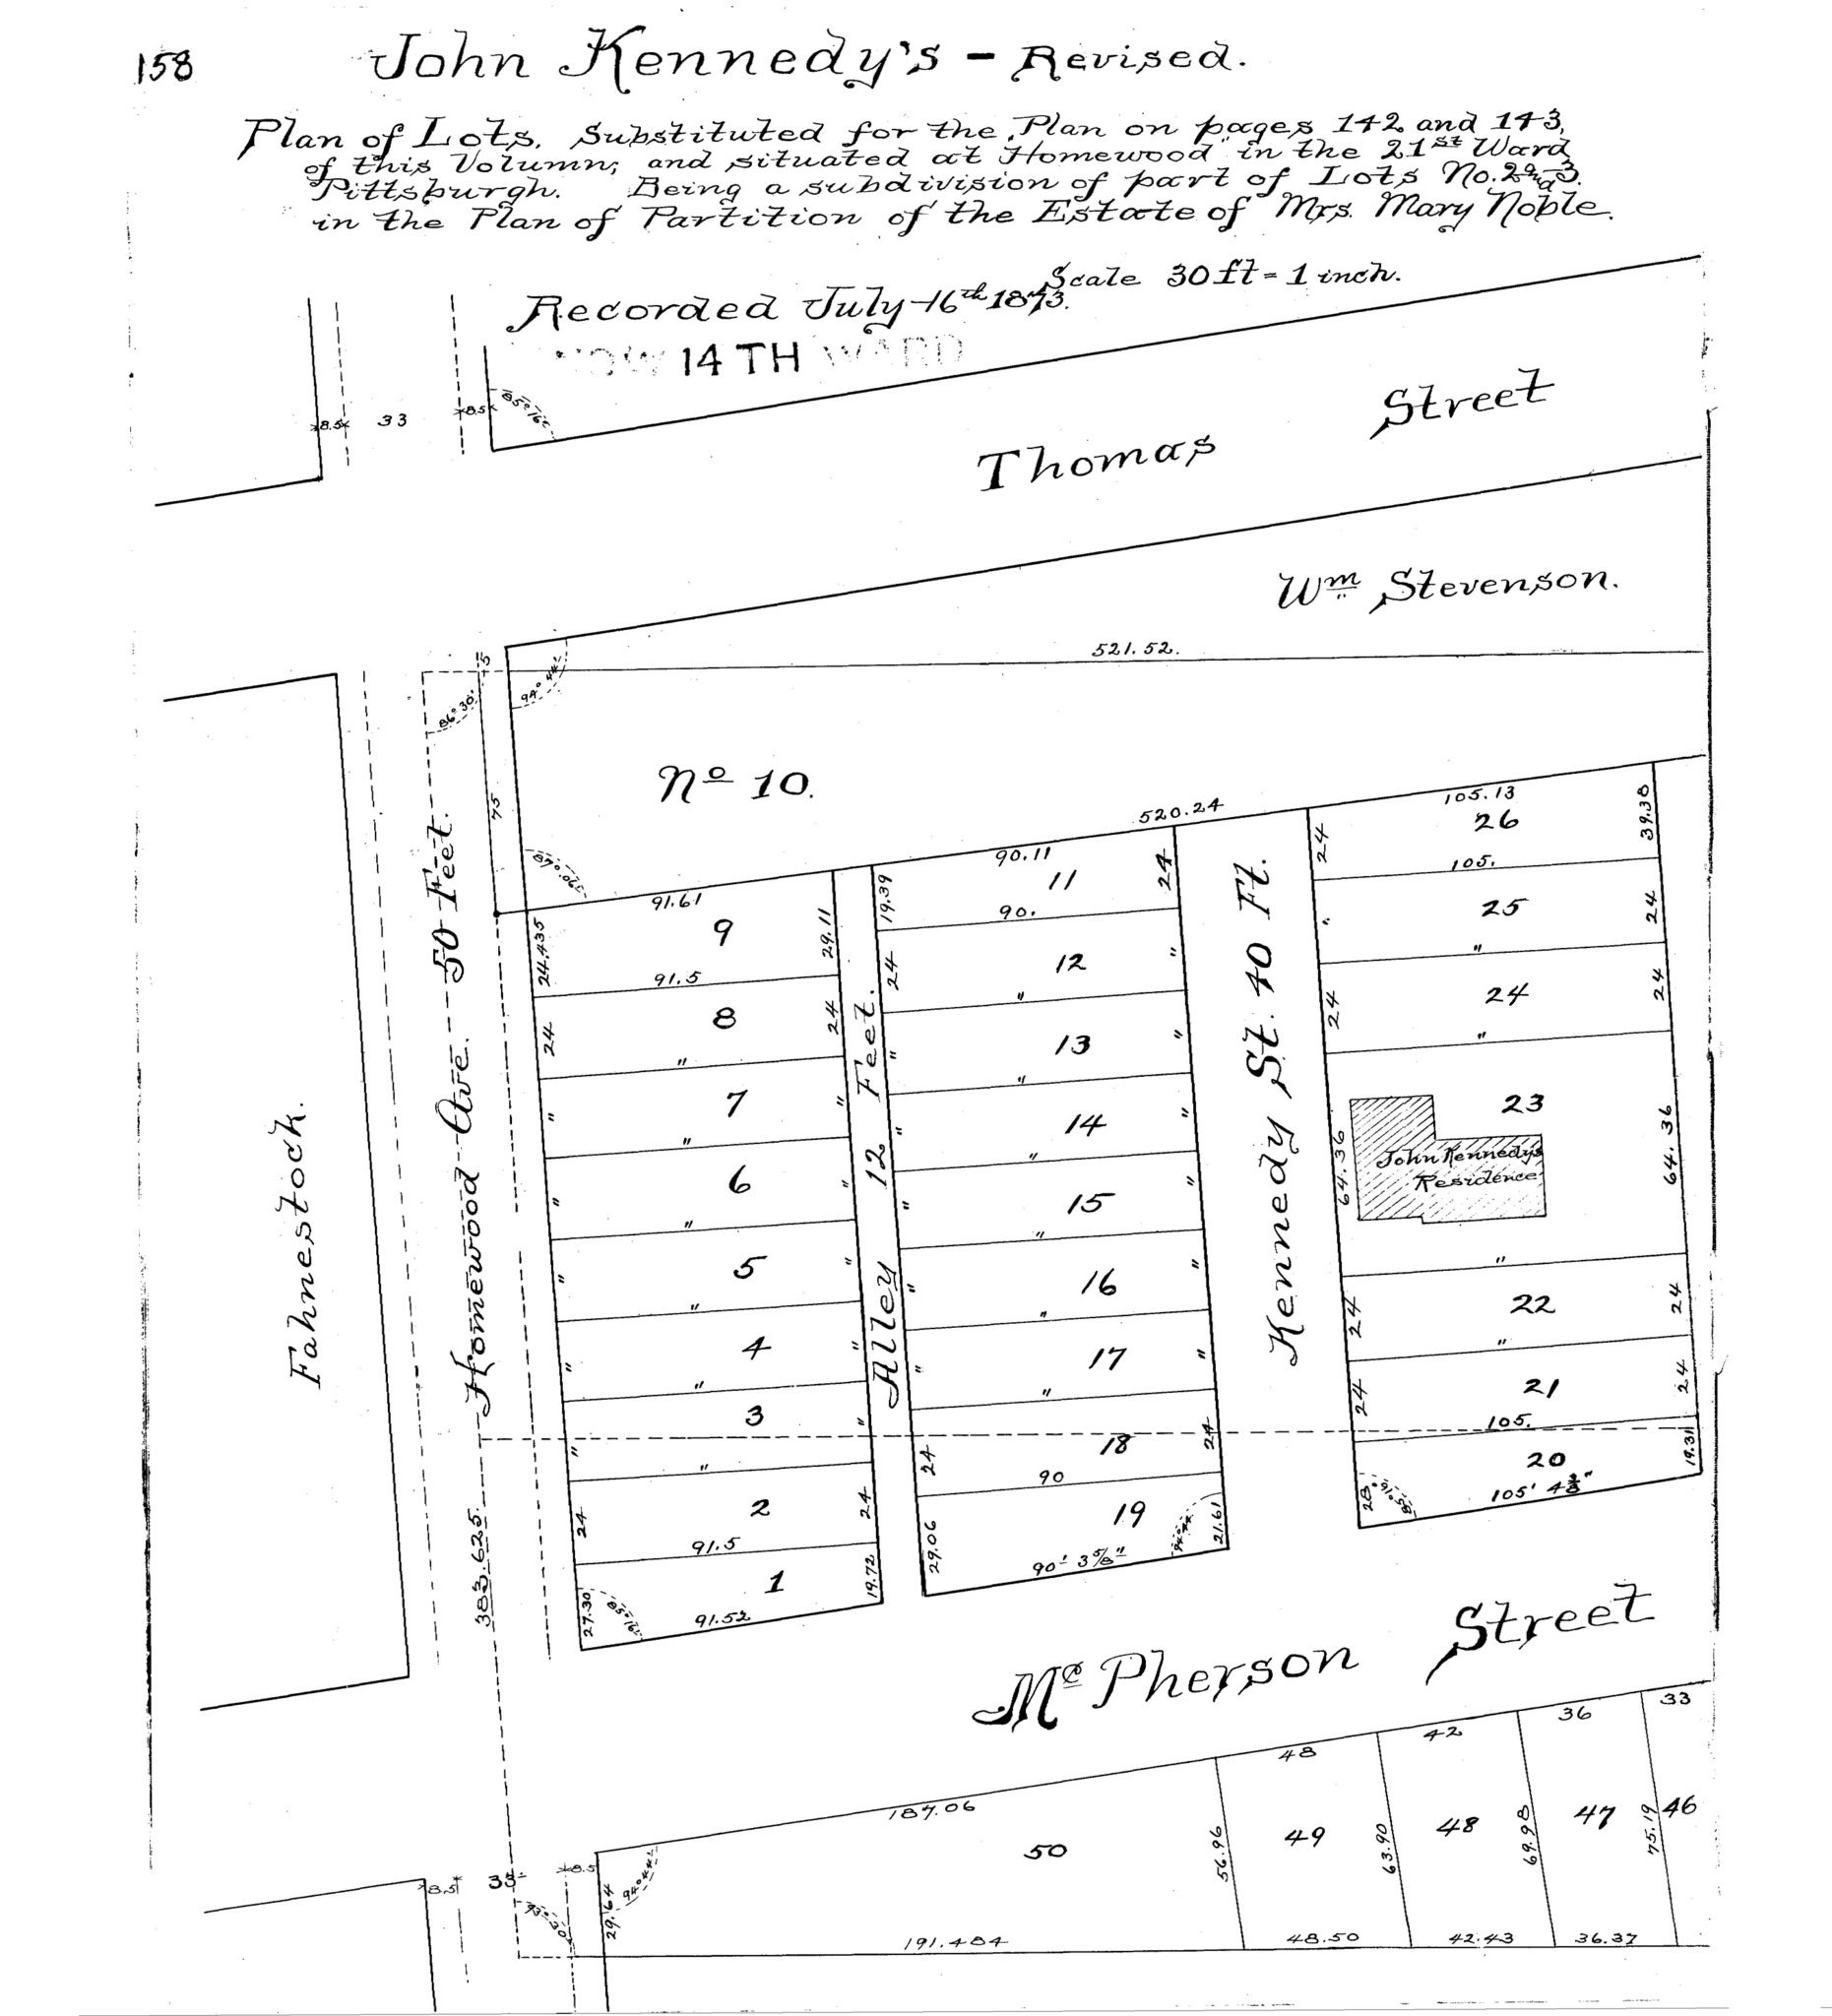 158
John Kennedy's - Revised.
Plan of Lots. Substituted for the Plan on pages 142 and 143,
of this Volumn; and situated at Homewood in the 21st Ward
Pittsburgh. Being a subdivision of part of Lots No. 2 and 3.
in the Plan of Partition of the Estate of Mrs. Mary Noble.
Scale 30 ft = 1 inch.
Recorded July 16th 1873.
NOW 14TH WARD
8.5 33 8.5 85°16'
Thomas Street
Wm Stevenson.
521.52.
5
86°30'
94°44'
75
No 10.
87°02'
520.24
Fahnestock.
Homewood Ave. 50 Feet.
383.625.
91.61
9
24.435
29.11
91.5
8
24
24
"
7
"
"
"
6
"
"
"
5
"
"
"
4
"
"
"
3
"
"
"
2
24
24
91.5
1
27.30
19.72
85°16'
91.52
Alley 12 Feet.
90.11
11
19.39
24
90.
12
24
"
"
13
"
"
"
14
"
"
"
15
"
"
"
16
"
"
"
17
"
"
"
18
24
24
90
19
29.06
21.61
90' 3 5/8"
Kennedy St. 40 Ft.
105.13
26
24
39.38
105.
25
"
24
"
24
24
24
"
23
64.36
64.36
John Kennedy's
Residence
"
22
24
24
"
21
24
24
105.
20
28
19.31
105' 4 3/8"
McPherson Street
187.06
50
94°44'
29.64
191.484
56.96
48
49
48.50
63.90
42
48
42.43
69.98
36
47
36.37
75.19
33
46
8.5 33 8.5
93°30'